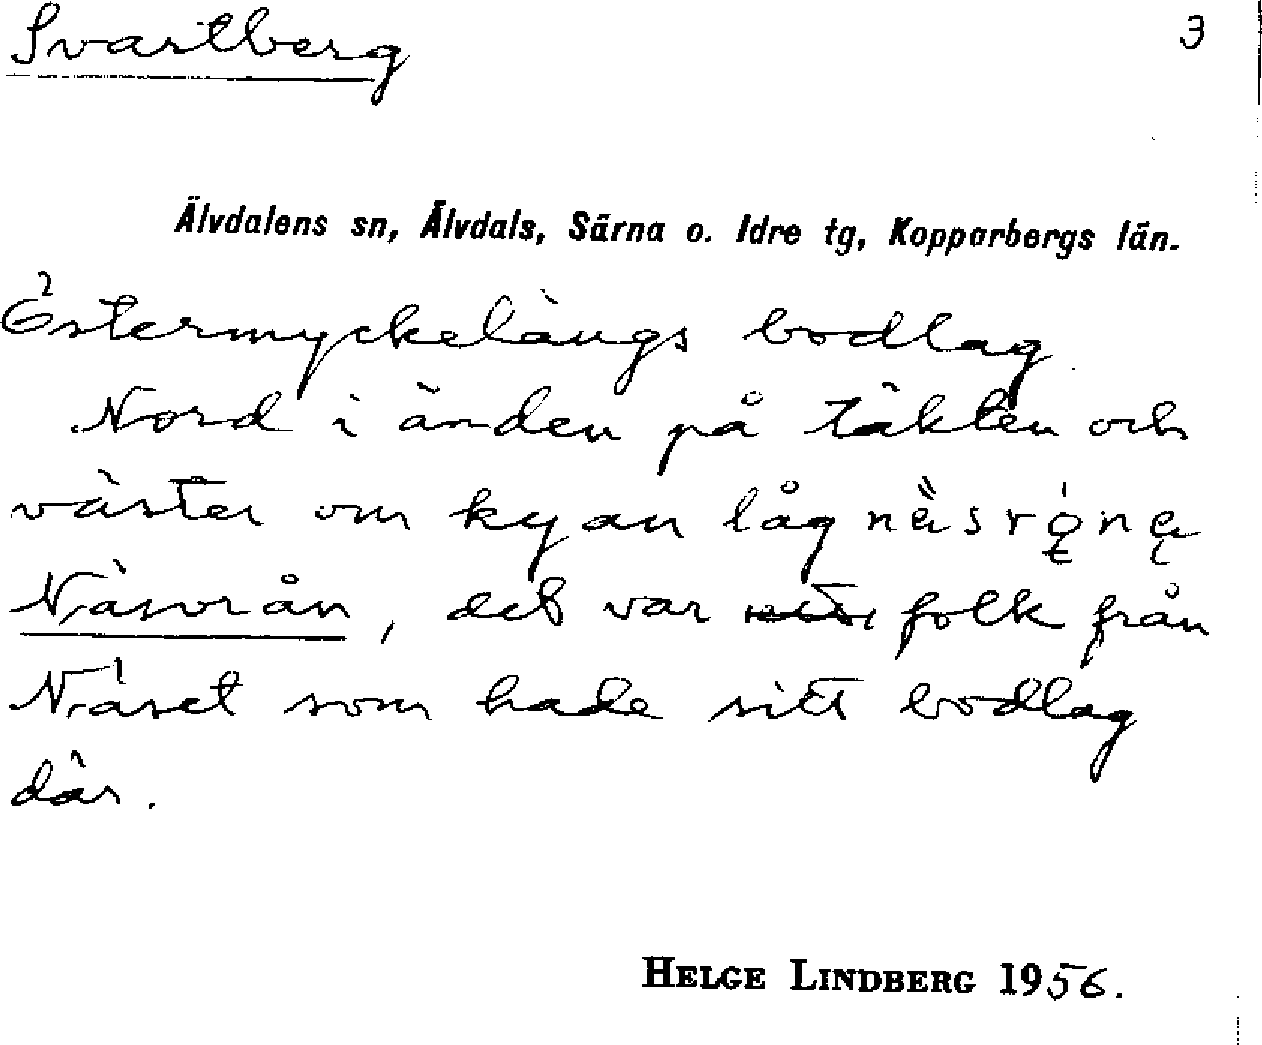 Svartberg 3
Älvdalens sn, Älvdals, Särna o. Idre tg, Kopparbergs län.
Östermyckelängs bodlag
Nord i änden på täkten och
väster om kyan låg
Näsvrån, det var folk från
Näset som hade sitt bodlag
där.
HELGE LINDBERG 1956.